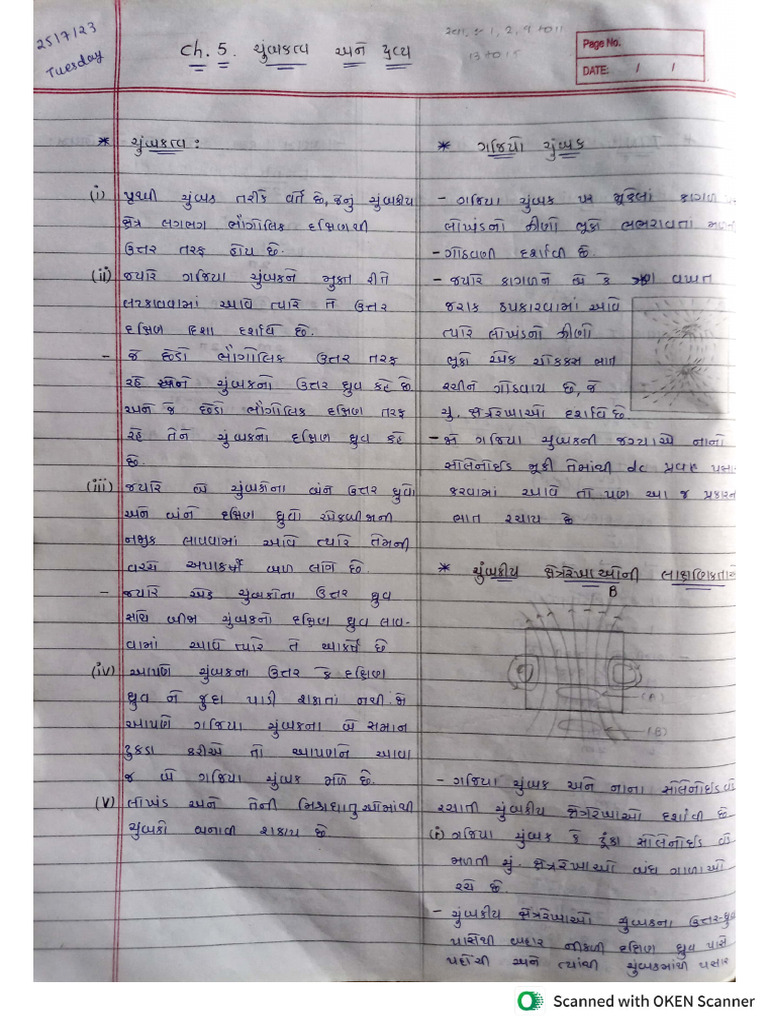 25/7/23
Tuesday
Ch. 5. ચુંબકત્વ અને દ્રવ્ય
Page No.
DATE: / /
* ચુંબકત્વ :
(i) પૃથ્વી ચુંબક તરીકે વર્તે છે, જેનું ચુંબકીય
ક્ષેત્ર લગભગ ભૌગોલિક દક્ષિણથી
ઉત્તર તરફ હોય છે.
(ii) જ્યારે ગજિયા ચુંબકને મુક્ત રીતે
લટકાવવામાં આવે ત્યારે તે ઉત્તર
દક્ષિણ દિશા દર્શાવે છે.
- જે છેડો ભૌગોલિક ઉત્તર તરફ
રહે તેને ચુંબકનો ઉત્તર ધ્રુવ કહે છે
અને જે છેડો ભૌગોલિક દક્ષિણ તરફ
રહે તેને ચુંબકનો દક્ષિણ ધ્રુવ કહે
છે.
(iii) જ્યારે બે ચુંબકોના બંને ઉત્તર ધ્રુવો
અને બંને દક્ષિણ ધ્રુવો એકબીજાની
નજીક લાવવામાં આવે ત્યારે તેમની
વચ્ચે અપાકર્ષી બળ લાગે છે.
- જ્યારે એક ચુંબકોના ઉત્તર ધ્રુવ
સાથે બીજા ચુંબકનો દક્ષિણ ધ્રુવ લાવ-
વામાં આવે ત્યારે તે આકર્ષે છે
(iv) આપણે ચુંબકના ઉત્તર કે દક્ષિણ
ધ્રુવ ને જુદા પાડી શકાતાં નથી. જો
આપણે ગજિયા ચુંબકના બે સમાન
ટુકડા કરીએ તો આપણને આવા
જ બે ગજિયા ચુંબક મળે છે.
(v) લોખંડ અને તેની મિશ્રધાતુઓમાંથી
ચુંબકો બનાવી શકાય છે
* ગજિયો ચુંબક
- ગજિયા ચુંબક પર મૂકેલાં કાગળ
લોખંડનો ઝીણો ભૂકો ભભરાવતાં
- ગોઠવણી દર્શાવી છે.
- જ્યારે કાગળને બે કે ત્રણ વખત
જરાક ઠપકારવામાં આવે
ત્યારે લોખંડનો ઝીણો
ભૂકો એક ચોક્કસ ભાત
રચીને ગોઠવાય છે, જે
ચું. ક્ષેત્રરેખાઓ દર્શાવે છે
- જો ગજિયા ચુંબકની જગ્યાએ નાનો
સોલેનોઈડ મૂકી તેમાંથી dc પ્રવાહ
કરવામાં આવે તો પણ આ જ પ્રકારન
ભાત રચાય છે
* ચુંબકીય ક્ષેત્રરેખાઓની લાક્ષણિકતાઓ
B
(A)
(B)
- ગજિયા ચુંબક અને નાના સોલેનોઈડ વડે
રચાતી ચુંબકીય ક્ષેત્રરેખાઓ દર્શાવી છે
(i) ગજિયા ચુંબક કે ટૂંકા સોલેનોઈડ વડે
મળતી ચું. ક્ષેત્રરેખાઓ બંધ ગાળાઓ
રચે છે.
- ચુંબકીય ક્ષેત્રરેખાઓ ચુંબકના ઉત્તર-ધ્રુવ
પાસેથી બહાર નીકળી દક્ષિણ ધ્રુવ પાસે
પહોંચી અને ત્યાંથી ચુંબકમાંથી પસાર
Scanned with OKEN Scanner